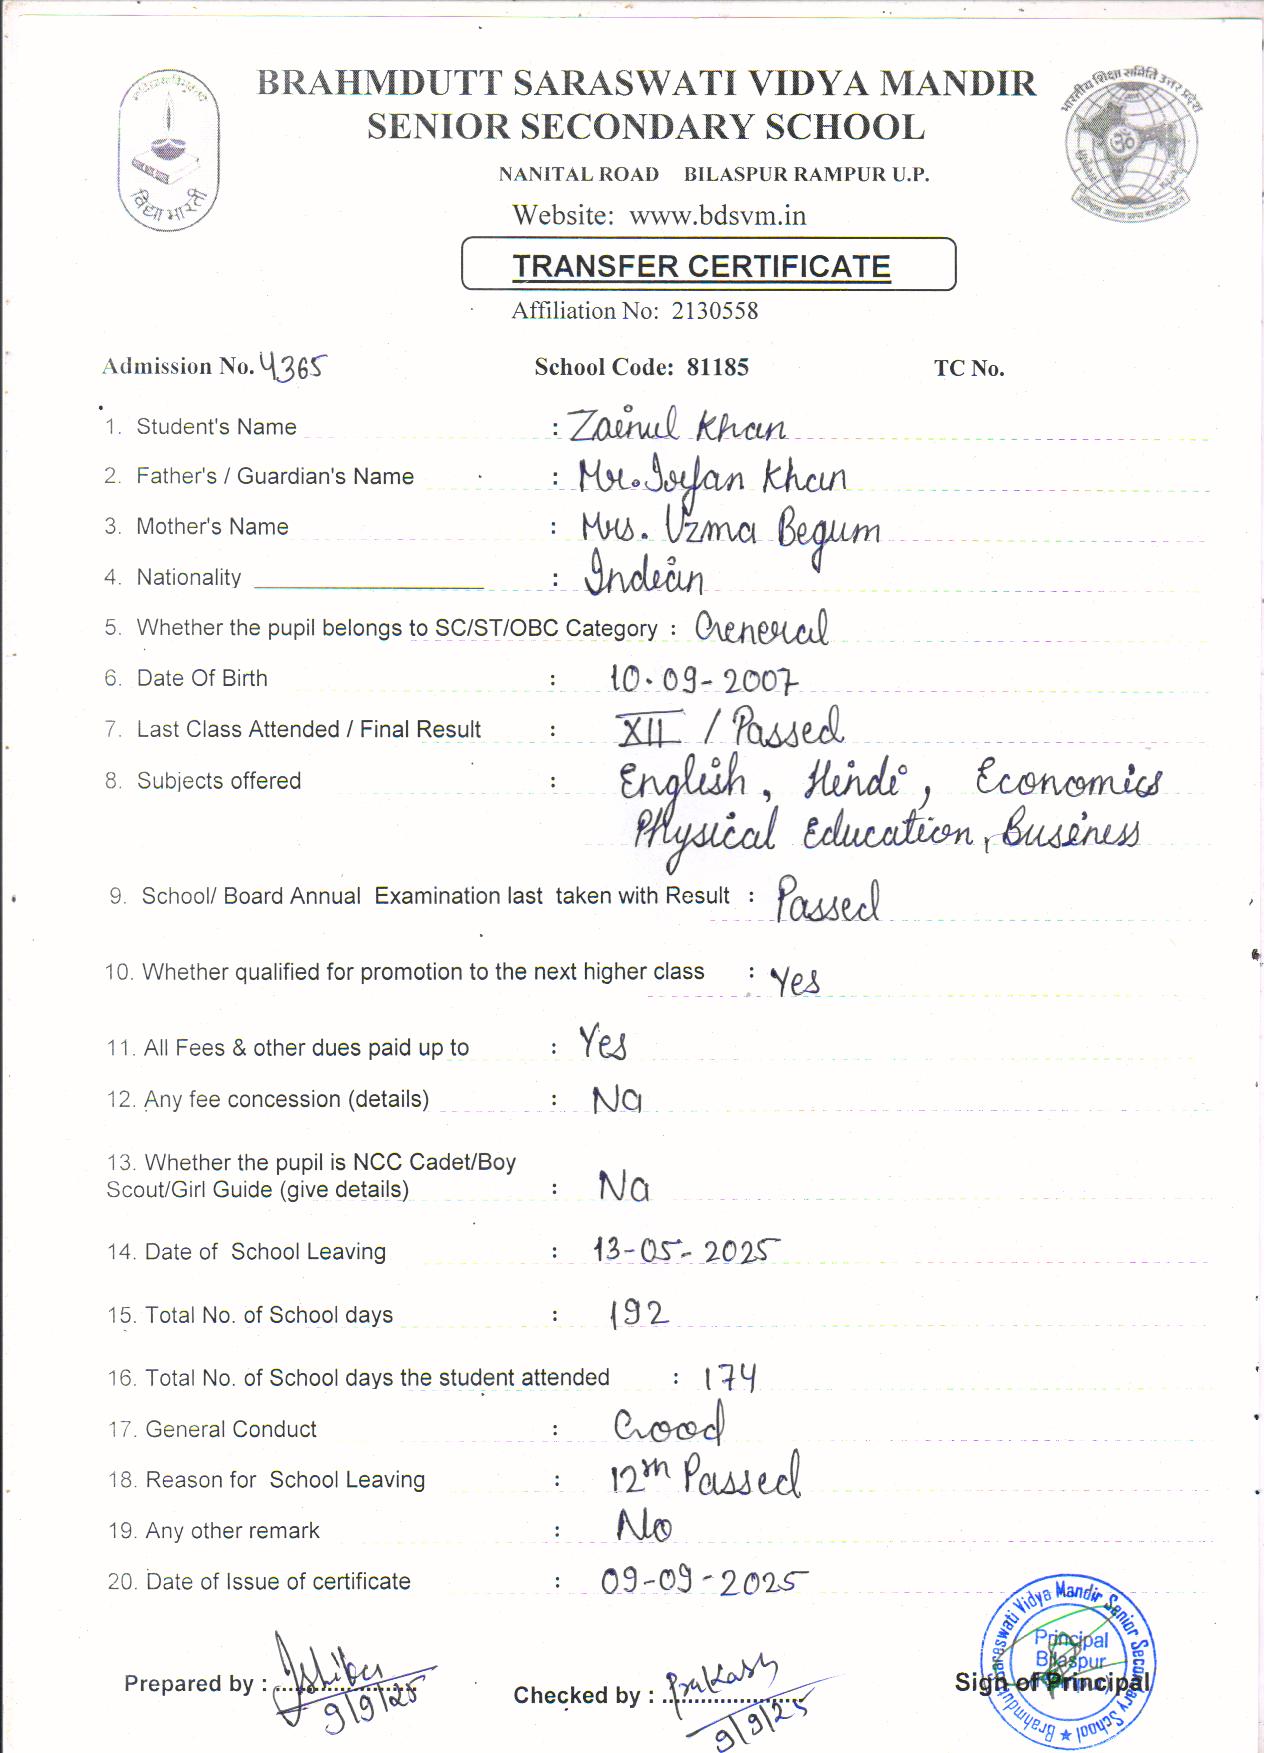 BRAHMDUTT SARASWATI VIDYA MANDIR
SENIOR SECONDARY SCHOOL
NANITAL ROAD BILASPUR RAMPUR U.P.
विद्या भारती
भारतीय शिक्षा समिति उत्तर प्रदेश
Website: www.bdsvm.in
TRANSFER CERTIFICATE
Affiliation No: 2130558
Admission No. 4365 School Code: 81185 TC No.
1. Student's Name : Zainul Khan
2. Father's / Guardian's Name : Mr. Irfan Khan
3. Mother's Name : Mrs. Uzma Begum
4. Nationality : Indian
5. Whether the pupil belongs to SC/ST/OBC Category : General
6. Date Of Birth : 10.09-2007
7. Last Class Attended / Final Result : XII / Passed
8. Subjects offered : English, Hindi, Economics
Physical Education, Business
9. School/ Board Annual Examination last taken with Result : Passed
10. Whether qualified for promotion to the next higher class : Yes
11. All Fees & other dues paid up to : Yes
12. Any fee concession (details) : No
13. Whether the pupil is NCC Cadet/Boy
Scout/Girl Guide (give details) : No
14. Date of School Leaving : 13-05-2025
15. Total No. of School days : 192
16. Total No. of School days the student attended : 174
17. General Conduct : Good
18. Reason for School Leaving : 12th Passed
19. Any other remark : No
20. Date of Issue of certificate : 09-09-2025
Prepared by : 9/9/25
Checked by : Prakash 9/9/25
Sign of Principal
Brahmdutt Saraswati Vidya Mandir Senior Secondary School
Principal
Bilaspur